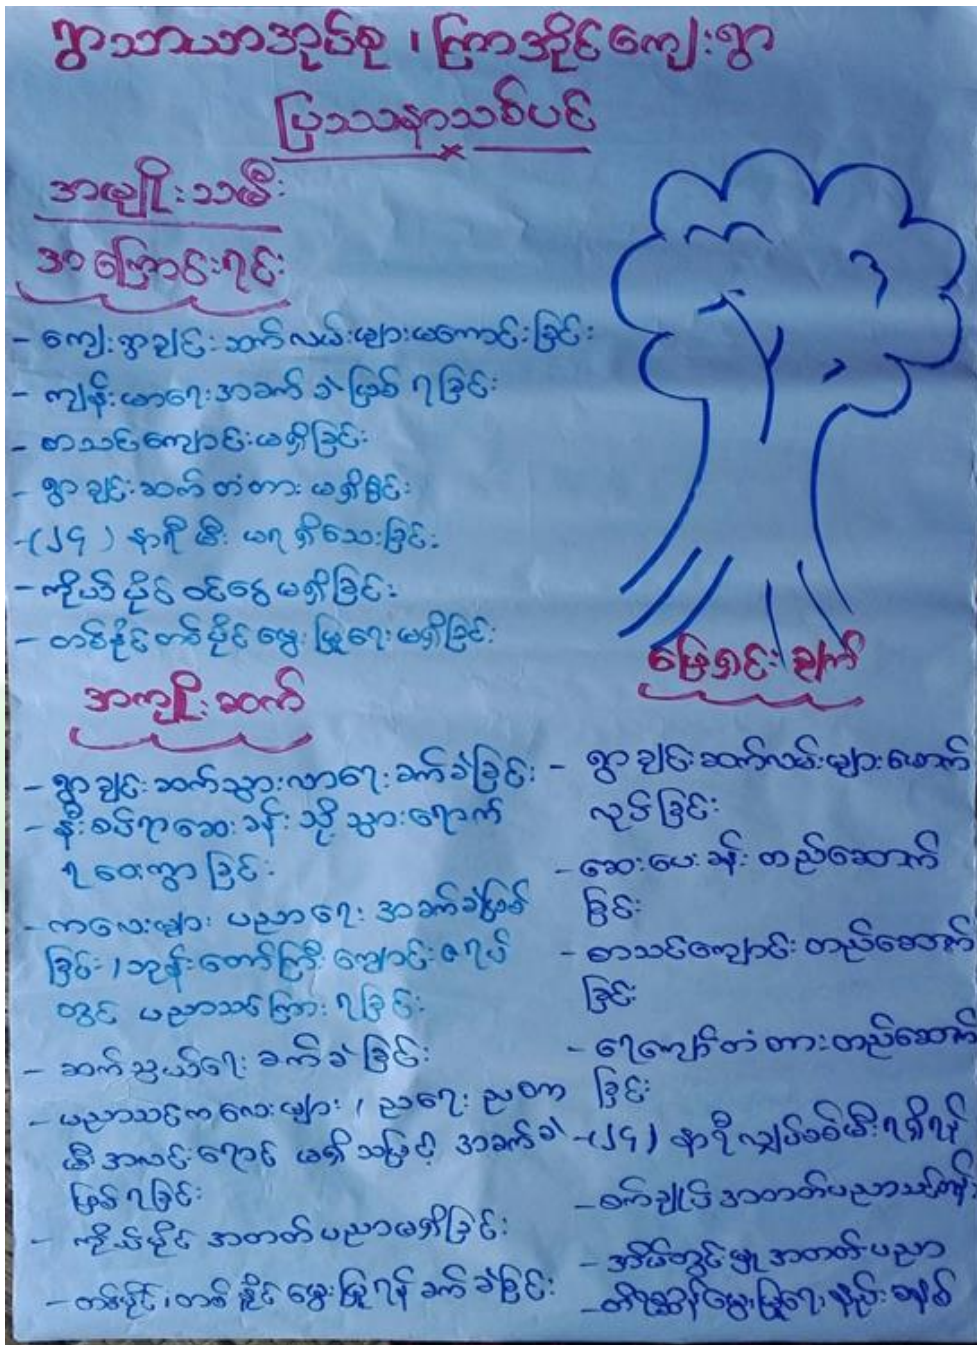 ရွာသာယာအုပ်စု ၊ ကြာအိုင်ကျေးရွာ
ပြဿနာသစ်ပင်
အမျိုးသမီး
အကြောင်းရင်း
- ကျေးရွာချင်းဆက်လမ်းများမကောင်းခြင်း
- ကျန်းမာရေးအခက်ခဲဖြစ်ရခြင်း
- စာသင်ကျောင်းမရှိခြင်း
- ရွာချင်းဆက်တံတားမရှိခြင်း
- (၂၄) နာရီ မီး မရရှိသေးခြင်း
- ကိုယ်ပိုင်ဝင်ငွေမရှိခြင်း
- တစ်နိုင်တစ်ပိုင်မွေးမြူရေးမရှိခြင်း
အကျိုးဆက်
- ရွာချင်းဆက်သွားလာရေးခက်ခဲခြင်း
- နီးစပ်ရာဆေးခန်းသို့သွားရောက်
ရဝေးကွာခြင်း
- ကလေးများ ပညာရေး အခက်ခဲဖြစ်
ခြင်း ၊ ဘုန်းတော်ကြီးကျောင်းဇရပ်
တွင် ပညာသင်ကြားရခြင်း
- ဆက်သွယ်ရေးခက်ခဲခြင်း
- ပညာသင်ကလေးများ ၊ ညရေးညတာ
မီးအလင်းရောင် မရှိသဖြင့် အခက်ခဲ
ဖြစ်ရခြင်း
- ကိုယ်ပိုင်အတတ်ပညာမရှိခြင်း
- တစ်ပိုင်၊တစ်နိုင်မွေးမြူရန်ခက်ခဲခြင်း
ဖြေရှင်းချက်
- ရွာချင်းဆက်လမ်းများဖောက်
လုပ်ခြင်း
- ဆေးပေးခန်းတည်ဆောက်
ခြင်း
- စာသင်ကျောင်းတည်ဆောက်
ခြင်း
- ရေကျော်တံတားတည်ဆောက်
ခြင်း
- (၂၄) နာရီလျှပ်စစ်မီးရရှိရန်
- စက်ချုပ်အတတ်ပညာသင်တန်း
- အိမ်တွင်းမှုအတတ်ပညာ
- တိရစ္ဆာန်မွေးမြူရေးနည်းစနစ်